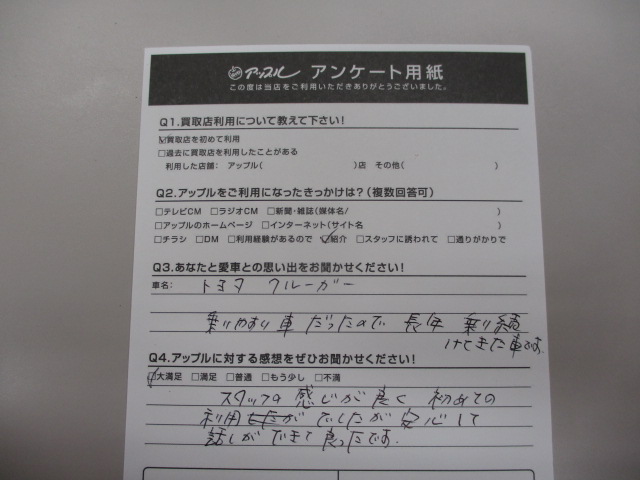 アップル アンケート用紙
この度は当店をご利用いただきありがとうございました。
Q1.買取店利用について教えて下さい!
☑買取店を初めて利用
□過去に買取店を利用したことがある
利用した店舗: アップル( )店 その他( )
Q2.アップルをご利用になったきっかけは?(複数回答可)
□テレビCM □ラジオCM □新聞・雑誌(媒体名/ )
□アップルのホームページ □インターネット(サイト名 )
□チラシ □DM □利用経験があるので ☑紹介 □スタッフに誘われて □通りがかりで
Q3.あなたと愛車との思い出をお聞かせください!
車名: トヨタ クルーガー
乗りやすい車だったので 長年 乗り続
けてきた車です。
Q4.アップルに対する感想をぜひお聞かせください!
☑大満足 □満足 □普通 □もう少し □不満
スタッフの感じが良く 初めての
利用でしたが安心して
話しができて良ったです。